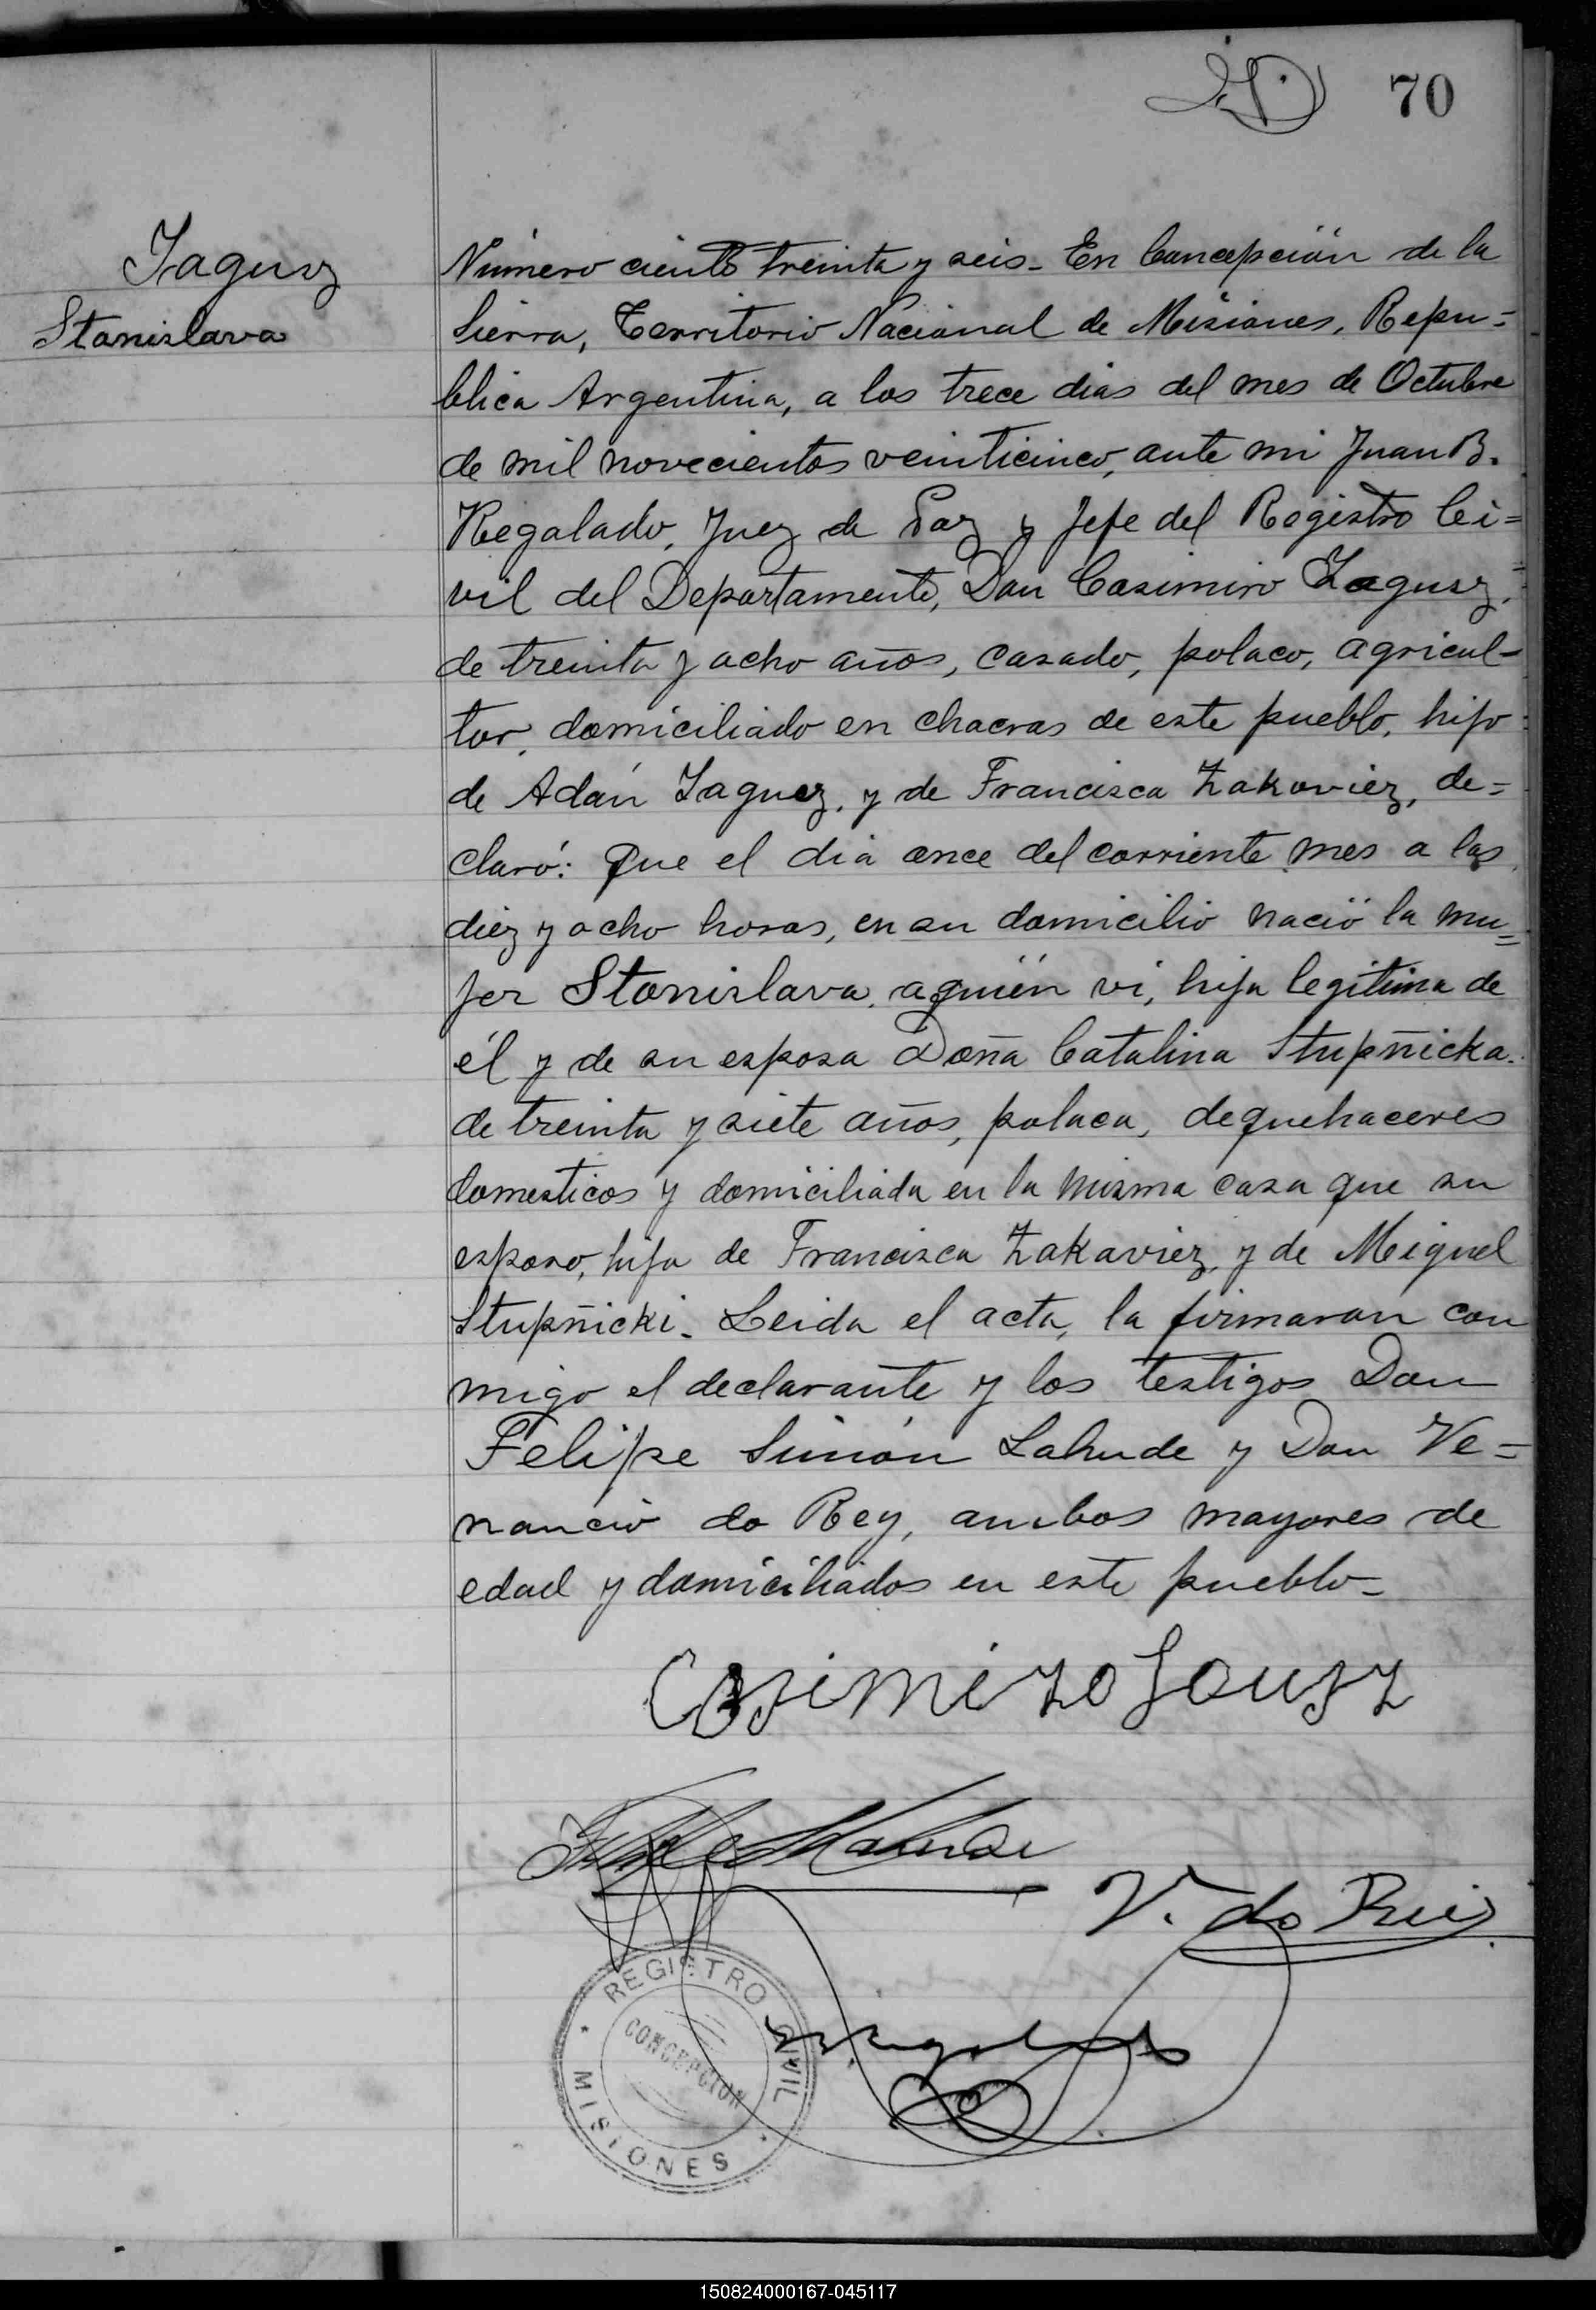 70
Jagusz
Stanislava
Número ciento treinta y seis - En Concepción de la
Sierra, Territorio Nacional de Misiones, Repu=
blica Argentina, a los trece dias del mes de Octubre
de mil novecientos veinticinco, ante mi Juan B.
Regalado, Juez de Paz y Jefe del Registro Ci=
vil del Departamento, Don Casimiro Jagusz,
de treinta y ocho años, casado, polaco, agricul-
tor, domiciliado en chacras de este pueblo, hijo
de Adán Jagusz, y de Francisca Zakaviez, de=
claró: Que el dia once del corriente mes a las
diez y ocho horas, en su domicilio nació la mu=
jer Stanislava, a quién vi, hija legitima de
él y de su esposa Doña Catalina Stupñicka.
de treinta y siete años, polaca, de quehaceres
domesticos y domiciliada en la misma casa que su
esposo, hija de Francisca Zakaviez, y de Miguel
Stupñicki. Leida el acta, la firmaron con
migo el declarante y los testigos Don
Felipe Simón Lahude y Don Ve=
nancio do Rey, ambos mayores de
edad y domiciliados en este pueblo-
Casimizo Jousz
V. do Rei
REGISTRO CIVIL
CONCEPCION
MISIONES
150824000167-045117